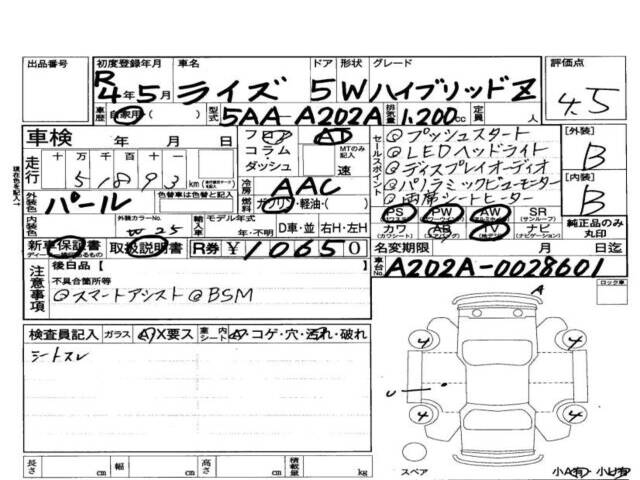 出品番号
初度登録年月 車名 ドア 形状 グレード 評価点
R4年5月 ライズ 5 W ハイブリッドZ 4.5
車歴 自家用( 型式 5AA-A202A 排気量 1,200cc 定員 人
車検 年 月 日
フロア AT
コラム・ MTのみ記入
ダッシュ 速
セールスポイント
@プッシュスタート
@LEDヘッドライト
@ディスプレイオーディオ
@パノラミックビューモニター
@両席シートヒーター
[外装] B
[内装] B
走行 十万千百十一
51893 km
冷房 AAC
外装色 パール 色替車は色替と記入
ガソリン・軽油・( )
内装色 外装カラーNo. W25
輸入車 モデル年式 年・不明 D車・並 右H・左H
PS PW AW SR (サンルーフ)
カワ (カワシート) AB TV ナビ (ナビゲーション)
純正品のみ丸印
新車保証書 取扱説明書 R券 ¥10650
名変期限 月 日迄
車台No. A202A-0028601
注意事項
後白品【 】
不具合箇所等
@スマートアシスト @BSM
ロック車
検査員記入 ガラス A X要ス 車内シート A・コゲ・穴・汚れ・破れ
シートスレ
A
4 4
U
4 4
スペア 小A有・小U有
長さ cm 幅 cm 高さ cm 積載量 kg